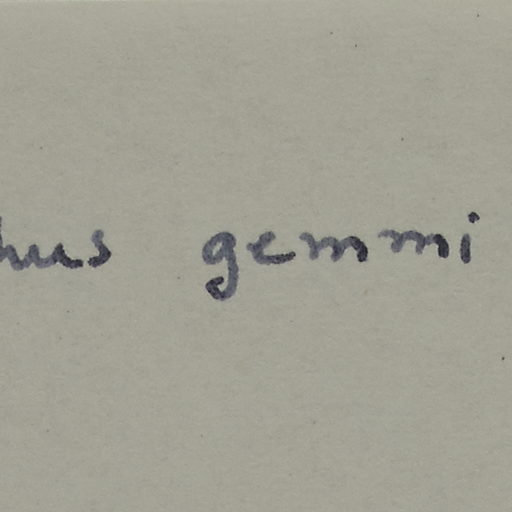 hus gemmi